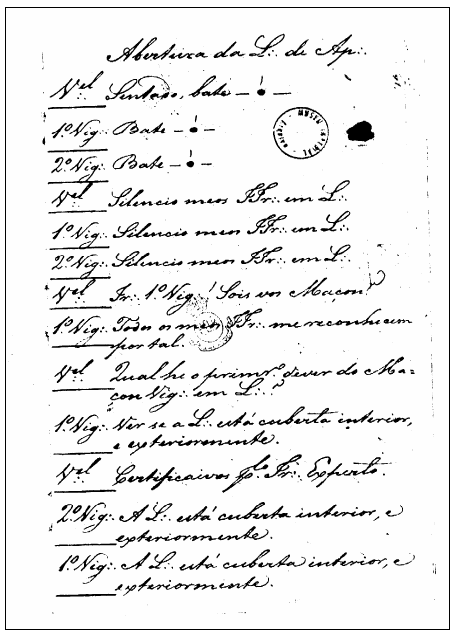 Abertura da L∴ de Ap∴
Vel Sentado, bate — • —
1º Vig∴ Bate — • —
2º Vig∴ Bate — • —
Vel Silencio meos IIr∴ em L∴
1º Vig∴ Silencio meos IIr∴ em L∴
2º Vig∴ Silencio meos IIr∴ em L∴
Vel Ir∴ 1º Vig∴! Sois vos Maçon?
1º Vig∴ Todos os meos IIr∴ me reconhecem
por tal.
Vel Qual he o primrº dever do Ma=
çon Vig∴ em L∴?
1º Vig∴ Ver se a L∴ está cuberta interior,
e exteriormente.
Vel Certificaivos plo Ir∴ Experto.
2º Vig∴ A L∴ está cuberta interior, e
exteriormente.
1º Vig∴ A L∴ está cuberta interior, e
exteriormente.